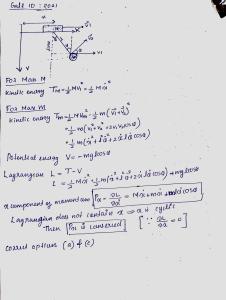 Gate ID : 2021
x
M
V1
V2
θ
m
V1
y
For Mass M
Kinetic energy T_M = ½ M V1² = ½ M ẋ²
For Mass m
Kinetic energy T_m = ½ m V_m² = ½ m (V⃗1 + V⃗2)²
= ½ m (V1² + V2² + 2V1V2 cosθ)
= ½ m (ẋ² + l²θ̇² + 2ẋ l θ̇ cosθ)
Potential energy V = -mgl cosθ
Lagrangian L = T - V
L = ½ M ẋ² + ½ m (ẋ² + l²θ̇² + 2ẋ l θ̇ cosθ) + mgl cosθ
x component of momentum Px = ∂L/∂ẋ = Mẋ + mẋ + mlθ̇ cosθ
Lagrangian does not contain x ⇒ x is cyclic
Then Px is conserved [∵ ∂L/∂x = 0]
correct options (a) & (c)